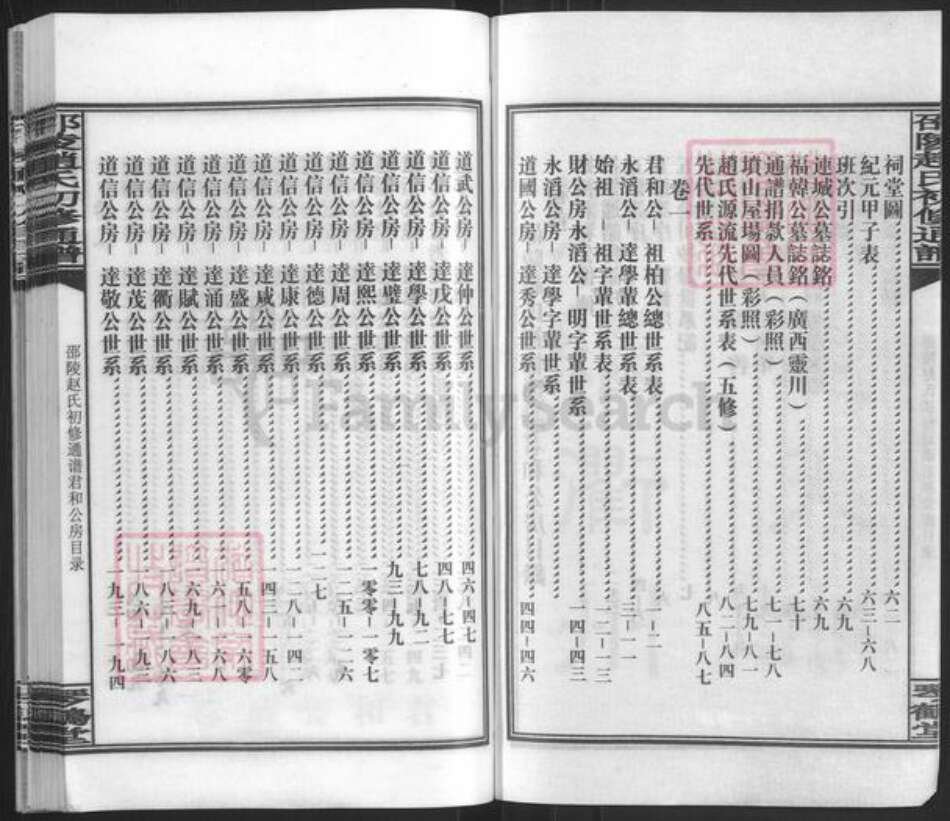 邵陵趙氏初修通譜
祠堂圖 六二
紀元甲子表 六三－六八
班次引 六九
連城公墓誌銘 六九
福韓公墓誌銘（廣西靈川） 七十
通譜捐款人員（彩照） 七一－七八
墳山屋場圖（彩照） 七九－八一
趙氏源流先代世系表（五修） 八二－八四
先代世系 八五－八七
卷一
君和公－祖柏公總世系表 一－二
永滔公－達學輩總世系表 三－一一
始祖－祖字輩世系表 一二－一三
財公房永滔公－明字輩世系 一四－四三
永滔公房－達學字輩世系
道國公房－達秀公世系 四四－四六
琴鶴堂
邵陵趙氏初修通譜
道武公房－達仲公世系 四六－四七
道信公房－達戊公世系 四八－七七
道信公房－達學公世系 七八－九二
道信公房－達璧公世系 九三－九九
道信公房－達熙公世系 一零零－一零七
道信公房－達周公世系 一二五－一二六
道信公房－達德公世系 一二七
道信公房－達康公世系 一二八－一四二
道信公房－達咸公世系 一四三－一五八
道信公房－達盛公世系 一五八－一六零
道信公房－達涌公世系 一六一－一六八
道信公房－達賦公世系 一六九－一八二
道信公房－達衢公世系 一八三－一八六
道信公房－達茂公世系 一八六－一九二
道信公房－達敬公世系 一九三－一九四
邵陵赵氏初修通谱君和公房目录
琴鶴堂
FamilySearch